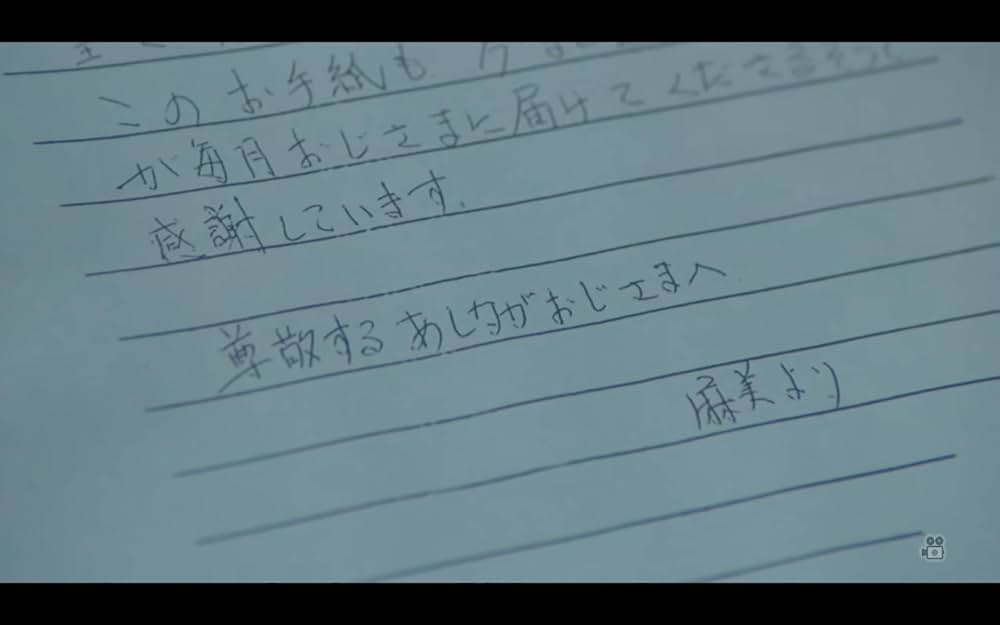 このお手紙も
が毎月おじさまに届けてくださるそうで
感謝しています。
尊敬するあしながおじさまへ
麻美より